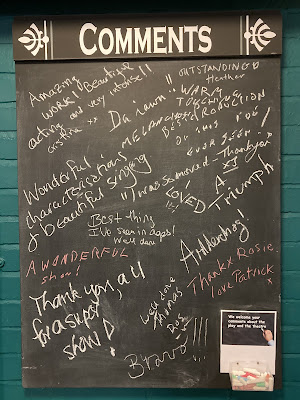 COMMENTS
Amazing
work! Beautiful
acting and very intense!!
OUTSTANDING
Heather
"WARM
TOUCHING
MELANCHOLY
BEST PRODUCTION
OF THIS
EVER SEEN!
Da iawn!!
Wonderful
characterisations
& beautiful singing
"I was so moved - Thank you
LOVED IT
A
Triumph
Best thing
I've seen in ages!
Well done
A WONDERFUL
show!
Thank you, all
for a super
show!
Well done
Thomas
Bravo!!!
Thanks Rosie
love Patrick x
We welcome your
comments about the
play and the theatre